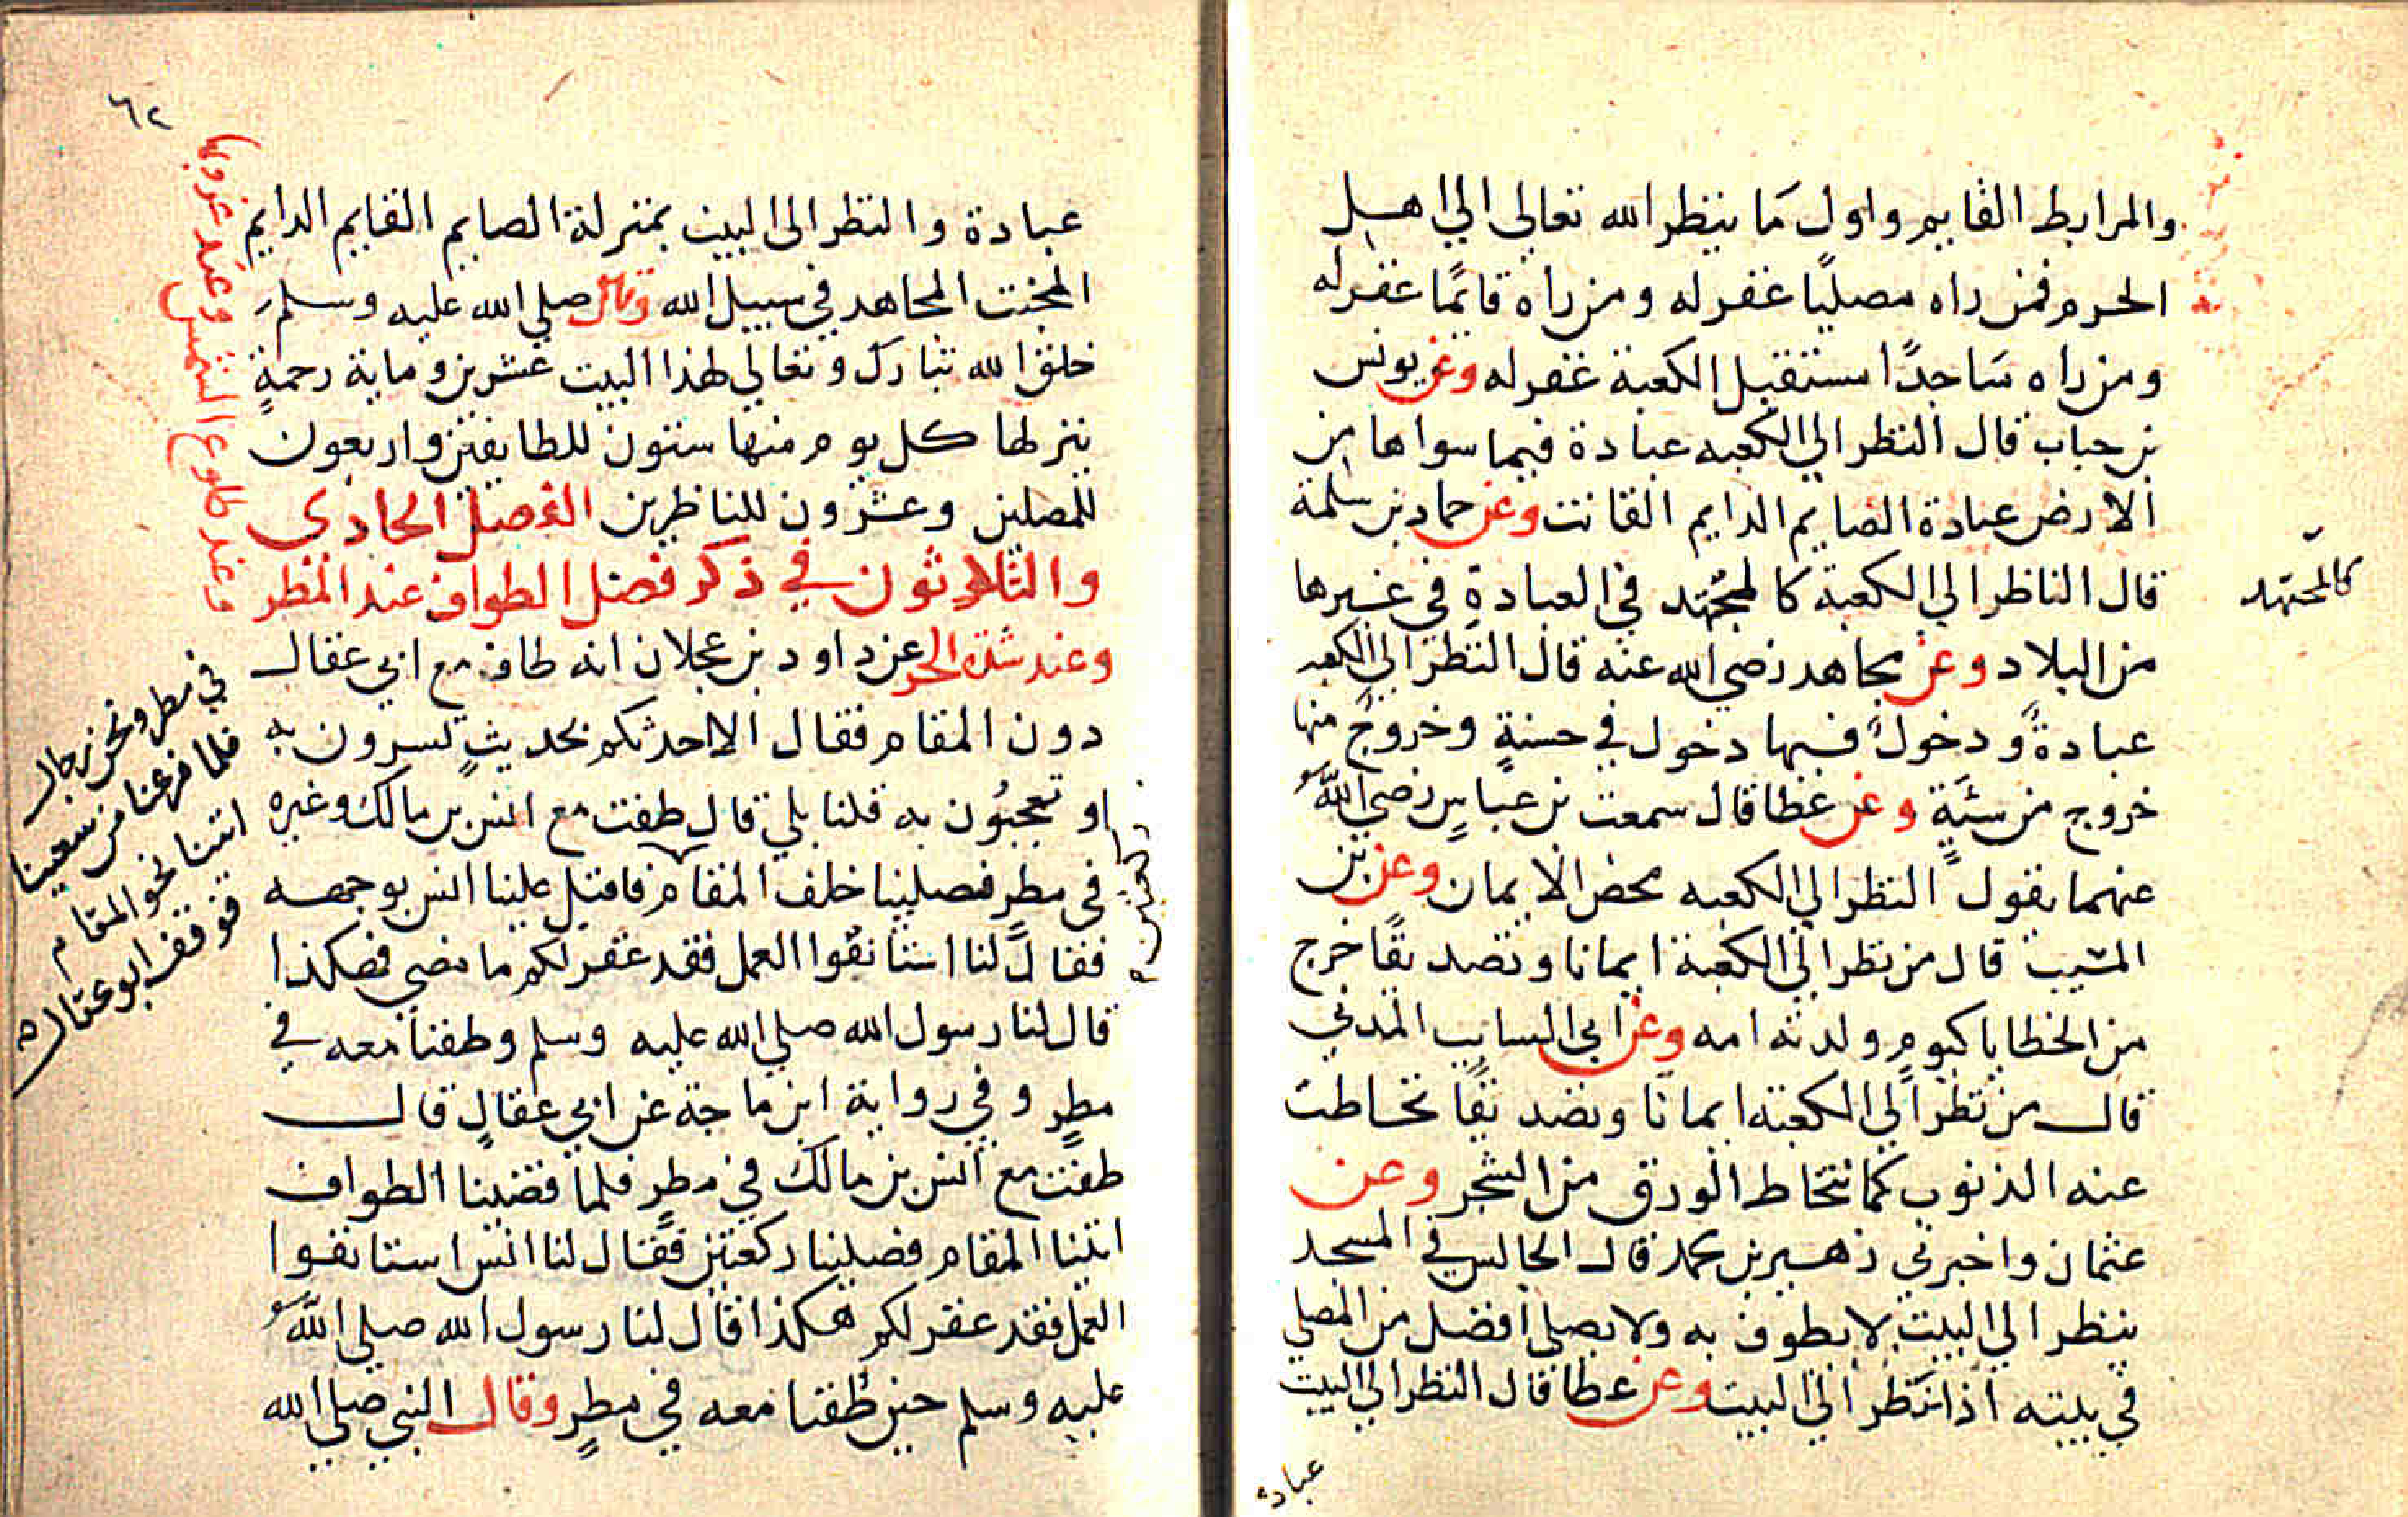 والمرابط القايم واول ما ينظر الله تعالى الي اهل
الحرم فمن راه مصليًا غفر له ومن راه قايمًا غفر له
ومن راه ساجدًا مستقبل الكعبة غفر له وعن يونس
بن حباب قال النظر الي الكعبه عبادة فيما سواها من
الارض عبادة الصايم الدايم القانت وعن حماد بن سلمة
قال الناظر الي الكعبة كالمجتهد في العبادة في غيرها
كالمجتهد
من البلاد وعن مجاهد رضي الله عنه قال النظر الي الكعبه
عبادةٌ ودخولٌ فيها دخول في حسنةٍ وخروجٌ منها
خروج من سئيةٍ وعن عطا قال سمعت بن عباسٍ رضي الله
عنهما يقول النظر الي الكعبه محض الايمان وعن بن
المسيب قال من نظر الي الكعبة ايمانا وتصديقًا خرج
من الخطايا كيومٍ ولدته امه وعن ابي السايب المدني
قال من نظر الي الكعبة ايمانا وتصديقًا تحاطت
عنه الذنوب كما تتحاط الورق من الشجر وعن
عثمان واخبرني زهير بن محمد قال الجالس في المسجد
ينظر الي البيت لا يطوف به ولا يصلي افضل من المصلي
في بيته اذا نظر الي البيت وعن عطا قال النظر الي البيت
عبادة
٦٢
عبادة والنظر الى البيت بمنزلة الصايم القايم الدايم
المخبت المجاهد في سبيل الله وقال صلي الله عليه وسلم
خلق الله تبارك وتعالي لهذا البيت عشرين وماية رحمةٍ
ينزلها كل يوم منها ستون للطايفين واربعون
للمصلين وعشرون للناظرين الفصل الحادي
والثلاثون في ذكر فضل الطواف عند المطر
وعند طلوع الشمس وعند غروبها
وعند شدة الحر عن داود بن عجلان انه طاف مع ابي عقال
في مطرٍ ونحن رجال
فلما فرغنا من سعينا
اتينا نحو المقام
فوقف ابو عقال
دون المقام فقال الا احدثكم بحديثٍ تسرون به
او تعجبُون به قلنا بلي قال طفت مع انس بن مالك وغيره
في مطرٍ فصلينا خلف المقام فاقبل علينا انس بوجهه
ركعتين
فقال لنا استانفوا العمل فقد غفر لكم ما مضي فهكذا
قال لنا رسول الله صلي الله عليه وسلم وطفنا معه في
مطرٍ وفي رواية ابن ماجة عن ابي عقالٍ قال
طفت مع انس بن مالك في مطرٍ فلما قضينا الطواف
اتينا المقام فصلينا ركعتين فقال لنا انس استانفوا
العمل فقد غفر لكم هكذا قال لنا رسول الله صلي الله
عليه وسلم حين طفنا معه في مطرٍ وقال النبي صلي الله